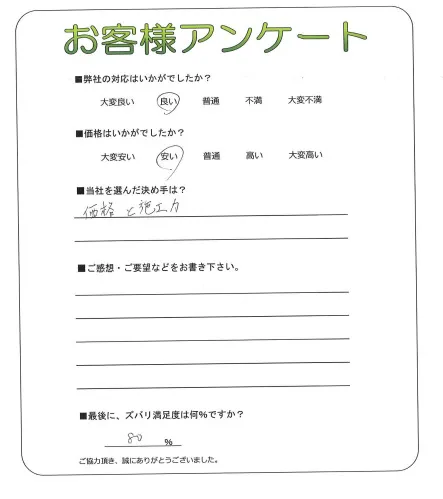 お客様アンケート
■弊社の対応はいかがでしたか？
大変良い 良い 普通 不満 大変不満
■価格はいかがでしたか？
大変安い 安い 普通 高い 大変高い
■当社を選んだ決め手は？
価格と施工力
■ご感想・ご要望などをお書き下さい。
■最後に、ズバリ満足度は何％ですか？
80 ％
ご協力頂き、誠にありがとうございました。